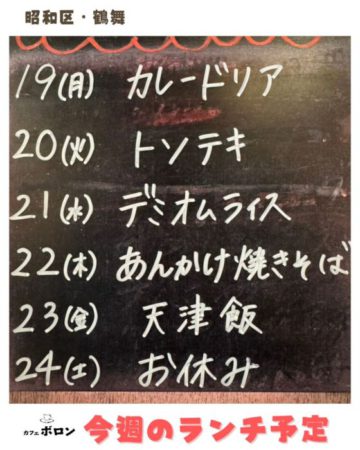 昭和区・鶴舞
19(月) カレードリア
20(火) トンテキ
21(水) デミオムライス
22(木) あんかけ焼きそば
23(金) 天津飯
24(土) お休み
カフェ ボロン
今週のランチ予定